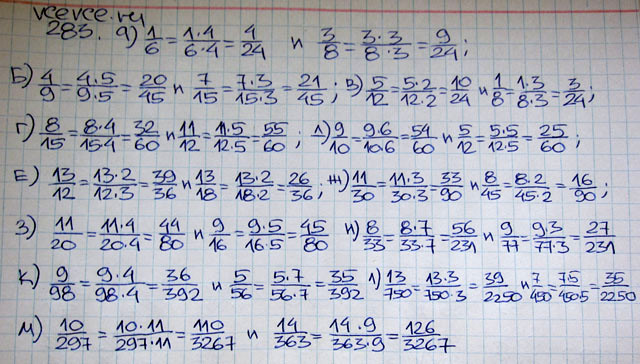 vcevce.ru
283. а) 1/6 = 1·4/6·4 = 4/24 и 3/8 = 3·3/8·3 = 9/24;
Б) 4/9 = 4·5/9·5 = 20/45 и 7/15 = 7·3/15·3 = 21/45; В) 5/12 = 5·2/12·2 = 10/24 и 1/8 = 1·3/8·3 = 3/24;
Г) 8/15 = 8·4/15·4 = 32/60 и 11/12 = 11·5/12·5 = 55/60; Д) 9/10 = 9·6/10·6 = 54/60 и 5/12 = 5·5/12·5 = 25/60;
Е) 13/12 = 13·2/12·3 = 39/36 и 13/18 = 13·2/18·2 = 26/36; Ж) 11/30 = 11·3/30·3 = 33/90 и 8/45 = 8·2/45·2 = 16/90;
З) 11/20 = 11·4/20·4 = 44/80 и 9/16 = 9·5/16·5 = 45/80 И) 8/33 = 8·7/33·7 = 56/231 и 9/77 = 9·3/77·3 = 27/231
К) 9/98 = 9·4/98·4 = 36/392 и 5/56 = 5·7/56·7 = 35/392 Л) 13/750 = 13·3/750·3 = 39/2250 и 7/450 = 7·5/450·5 = 35/2250
М) 10/297 = 10·11/297·11 = 110/3267 и 14/363 = 14·9/363·9 = 126/3267